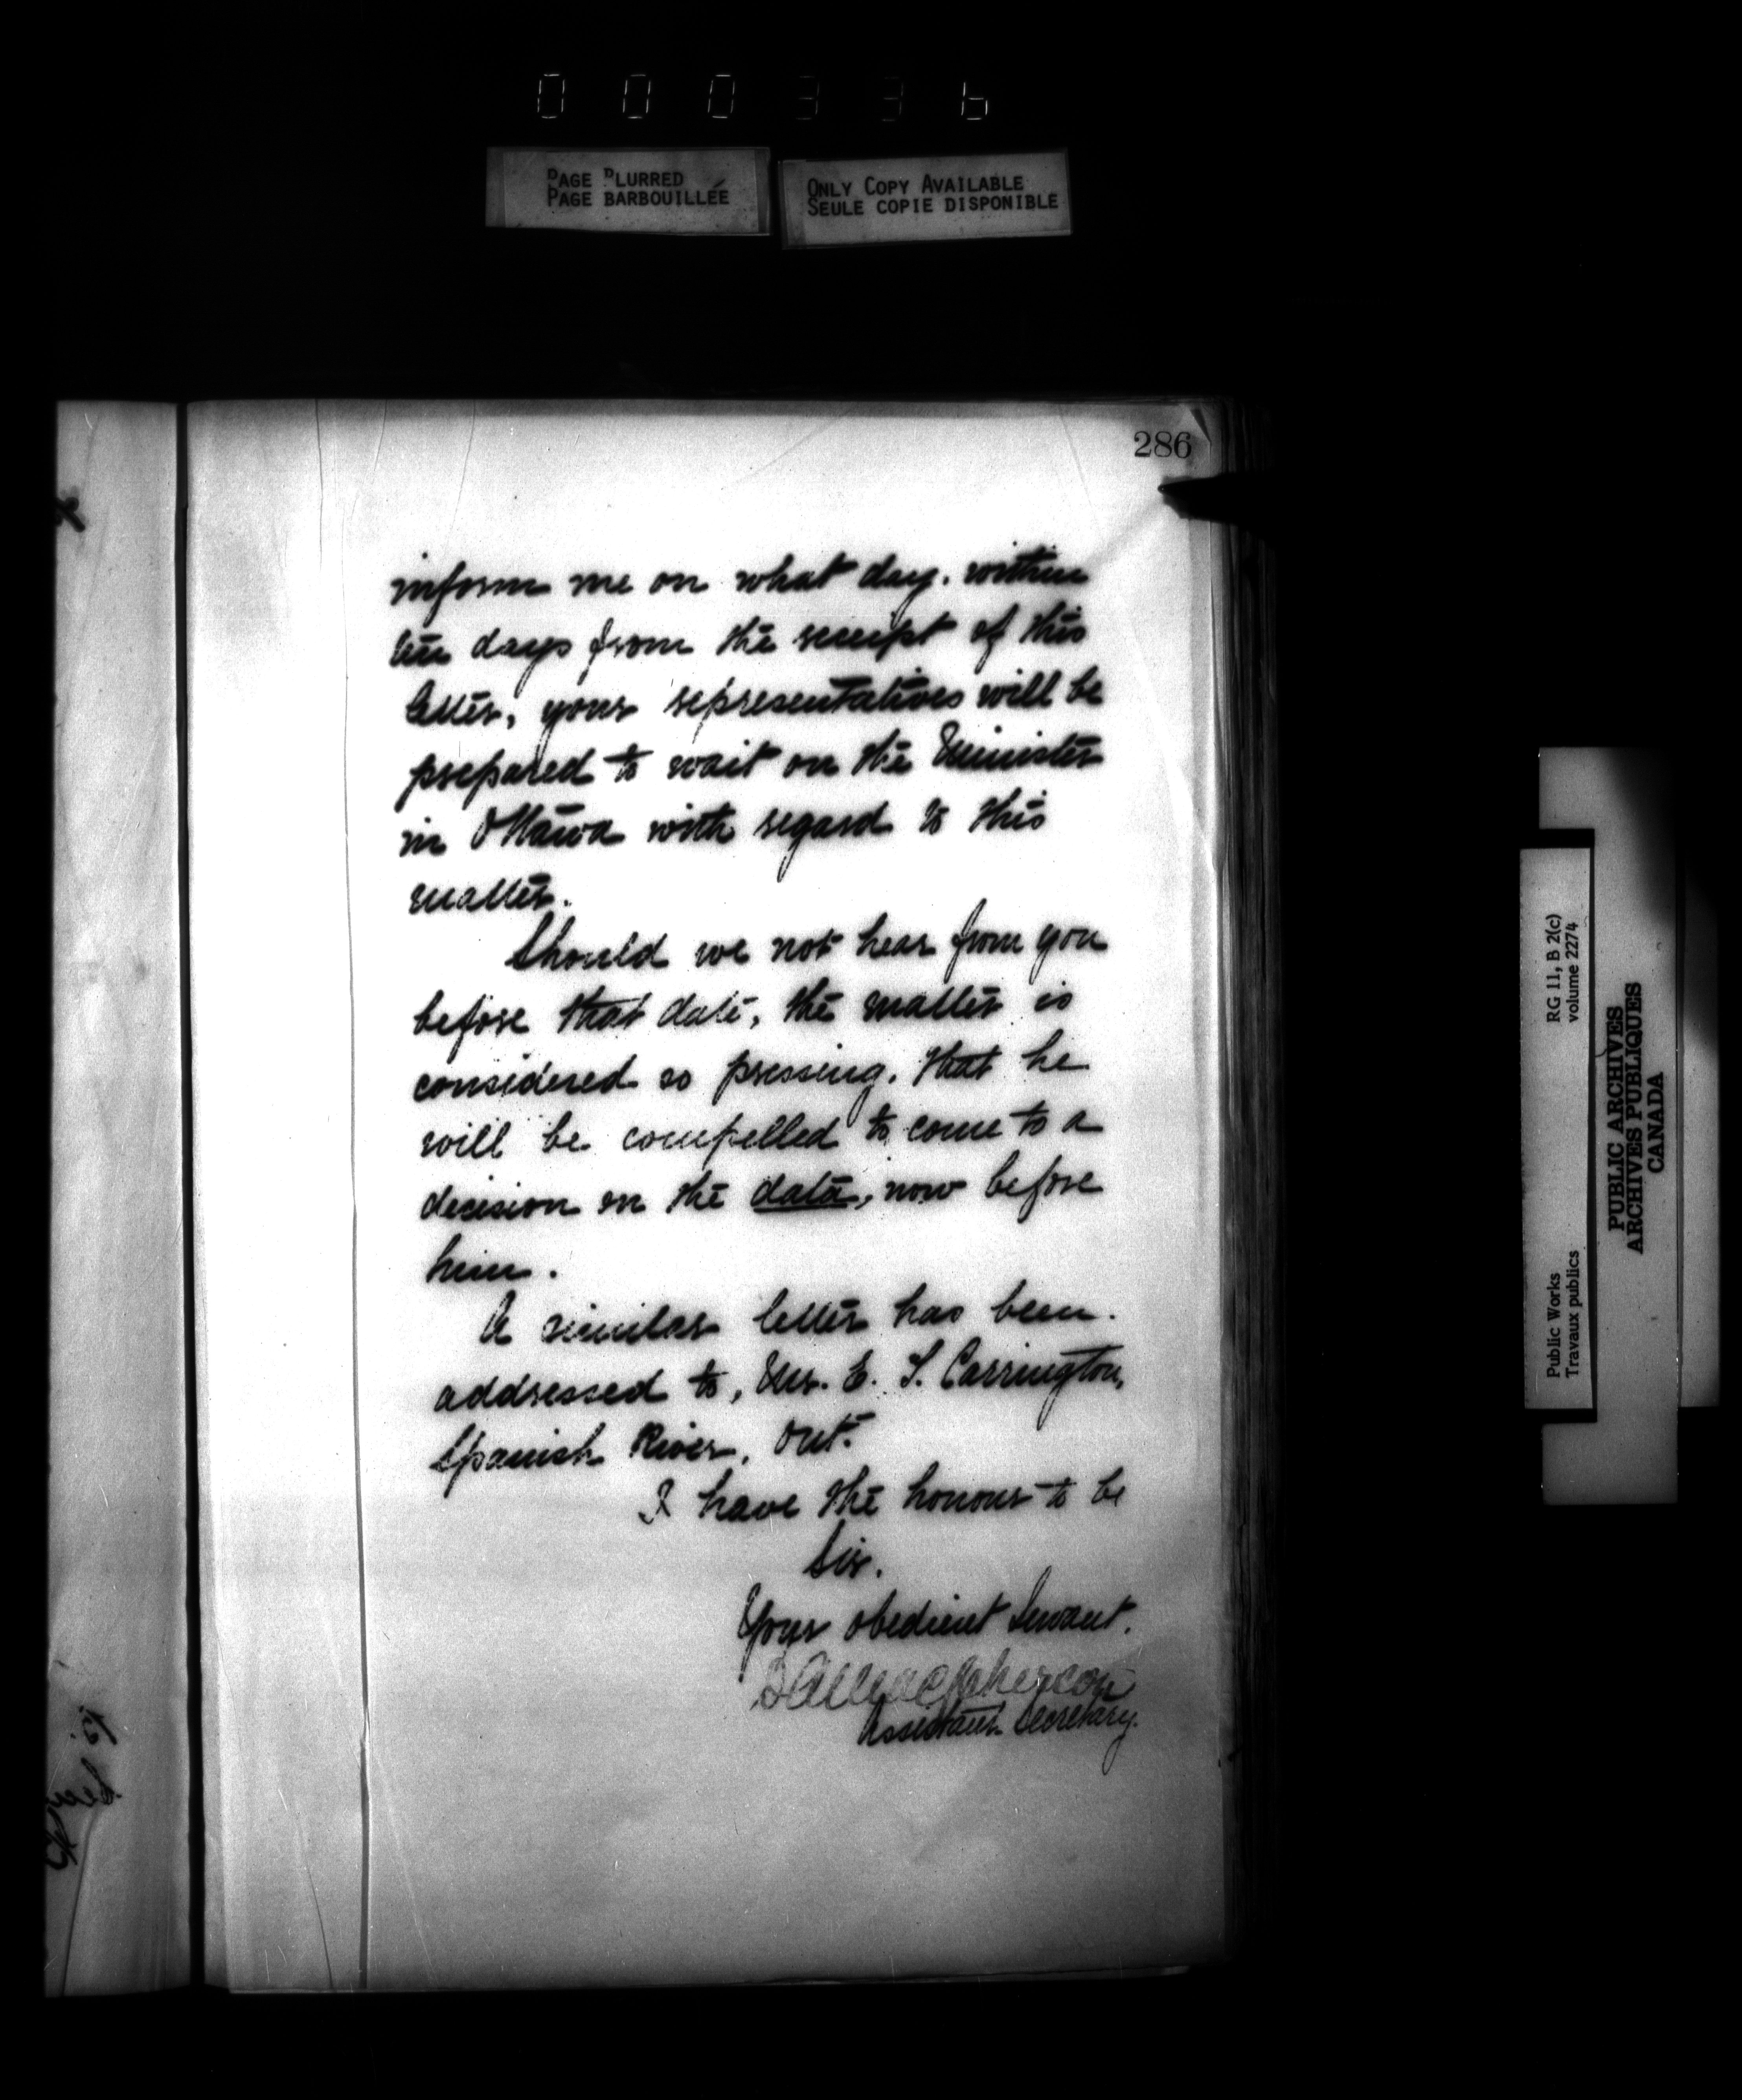 000336
PAGE BLURRED
PAGE BARBOUILLÉE
ONLY COPY AVAILABLE
SEULE COPIE DISPONIBLE
286
inform me on what day, within
ten days from the receipt of this
letter, your representatives will be
prepared to wait on the Minister
in Ottawa with regard to this
matter.
Should we not hear from you
before that date, the matter is
considered so pressing, that he
will be compelled to come to a
decision on the data, now before
him.
A similar letter has been
addressed to, Mr. E. S. Carrington,
Spanish River, Ont.
I have the honour to be
Sir.
Your obedient Servant.
D A Macpherson
Assistant Secretary.
Public Works
Travaux publics
RG 11, B 2(c)
volume 2274
PUBLIC ARCHIVES
ARCHIVES PUBLIQUES
CANADA